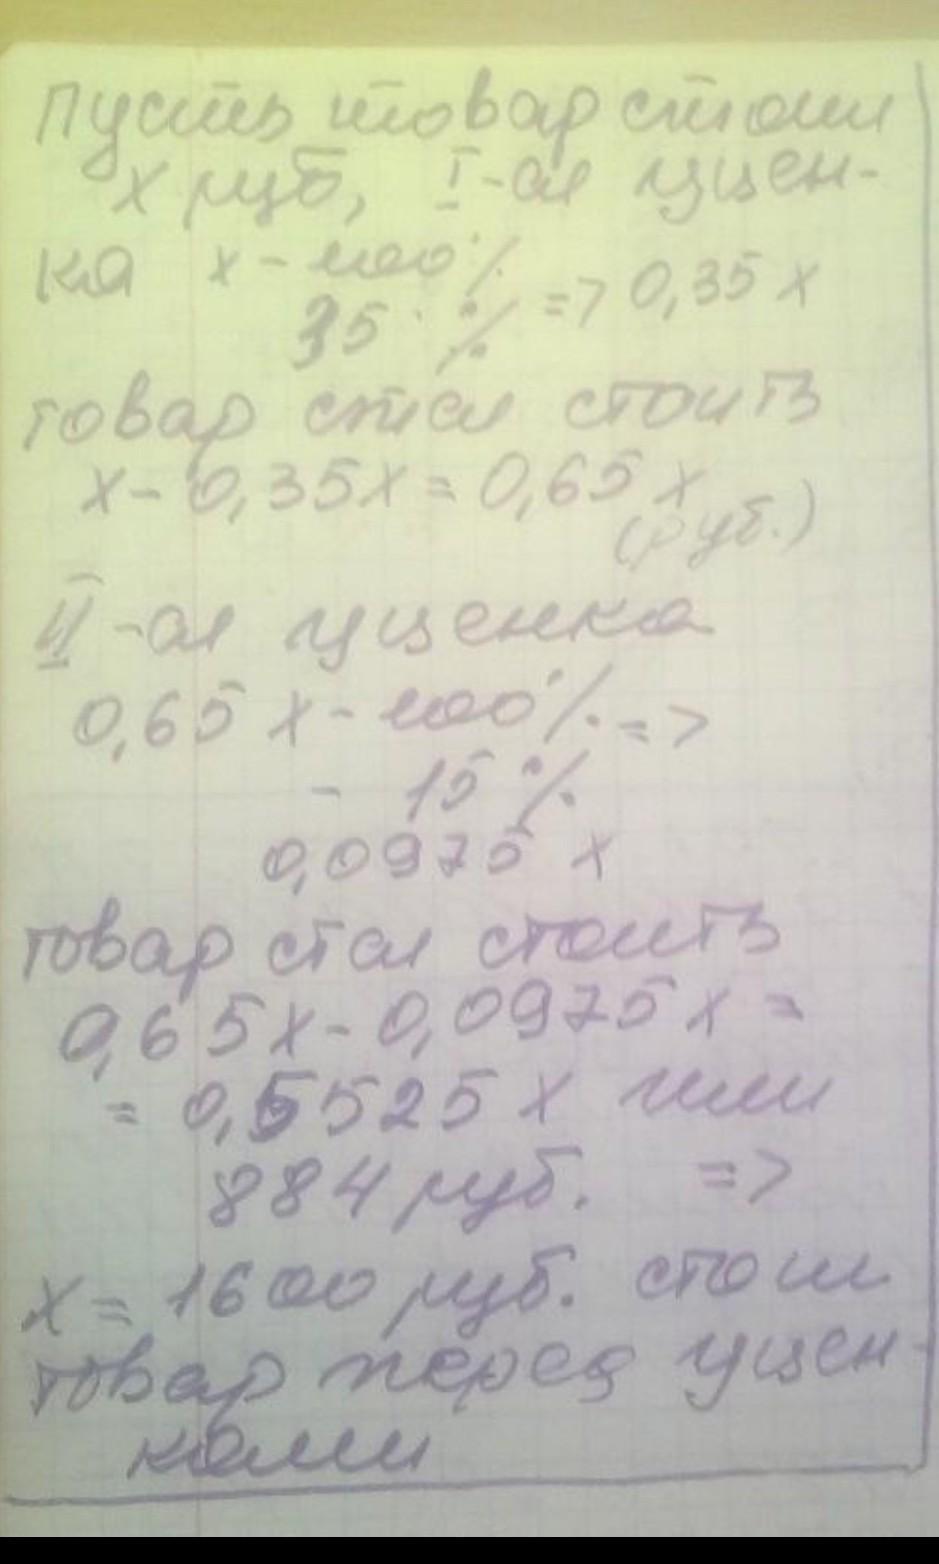 Пусть товар стоил
x руб, I-ая уцен-
ка x - 100%
35% => 0,35x
товар стал стоить
x - 0,35x = 0,65x
(руб.)
II-ая уценка
0,65x - 100% =>
- 15%
0,0975x
товар стал стоить
0,65x - 0,0975x =
= 0,5525x или
884 руб. =>
x = 1600 руб. стоил
товар перед уцен-
ками